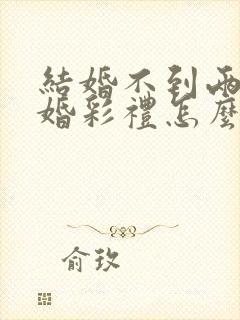 結婚不到兩
婚彩禮怎麼
俞玫